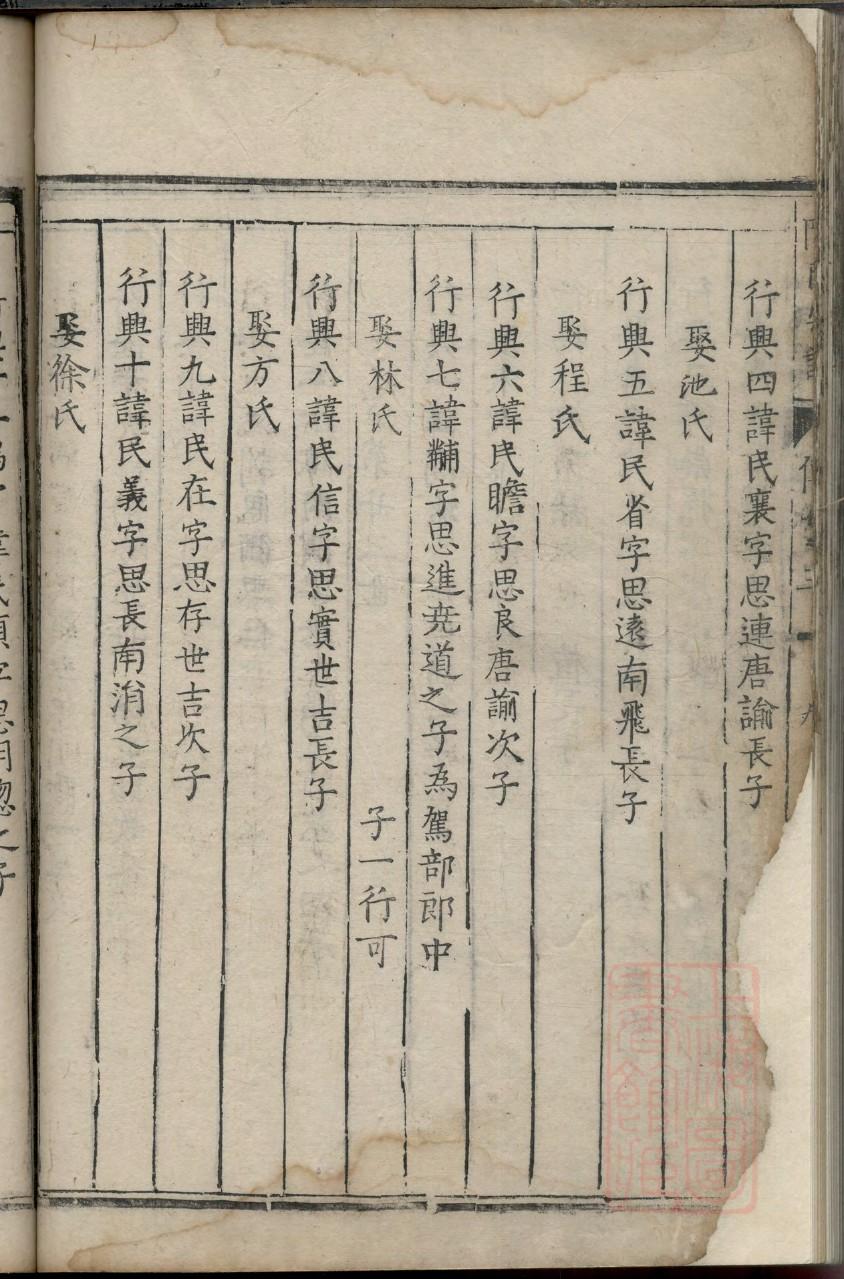 行興四諱民襄字思連唐諭長子
娶池氏
行興五諱民省字思遠南飛長子
娶程氏
行興六諱民瞻字思良唐諭次子
行興七諱黼字思進堯道之子為駕部郎中
娶林氏　子一行可
行興八諱民信字思實世吉長子
娶方氏
行興九諱民在字思存世吉次子
行興十諱民義字思長南消之子
娶徐氏